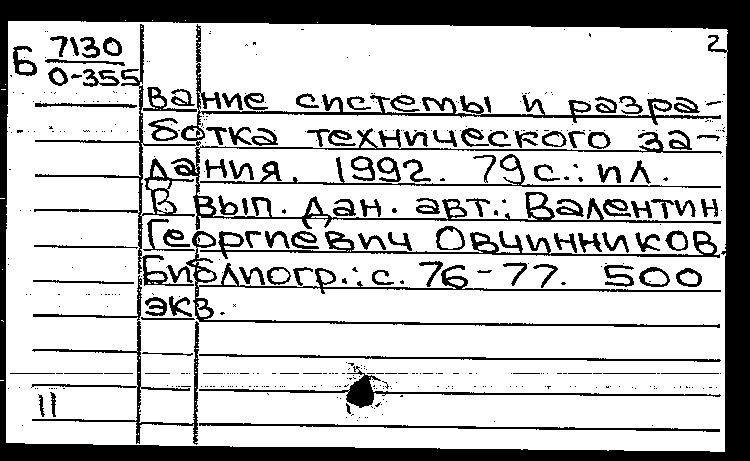 2
Б 7130
0-355
вание системы и разра-
ботка технического за-
дания. 1992. 79с.: ил.
В вып. дан. авт.: Валентин
Георгиевич Овчинников.
Библиогр.: с. 76-77. 500
экз.
11